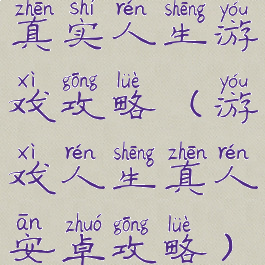 zhēn shí rén shēng yóu
真实人生游
xì gōng lüè yóu
戏攻略（游
xì rén shēng zhēn rén
戏人生真人
ān zhuó gōng lüè
安卓攻略）